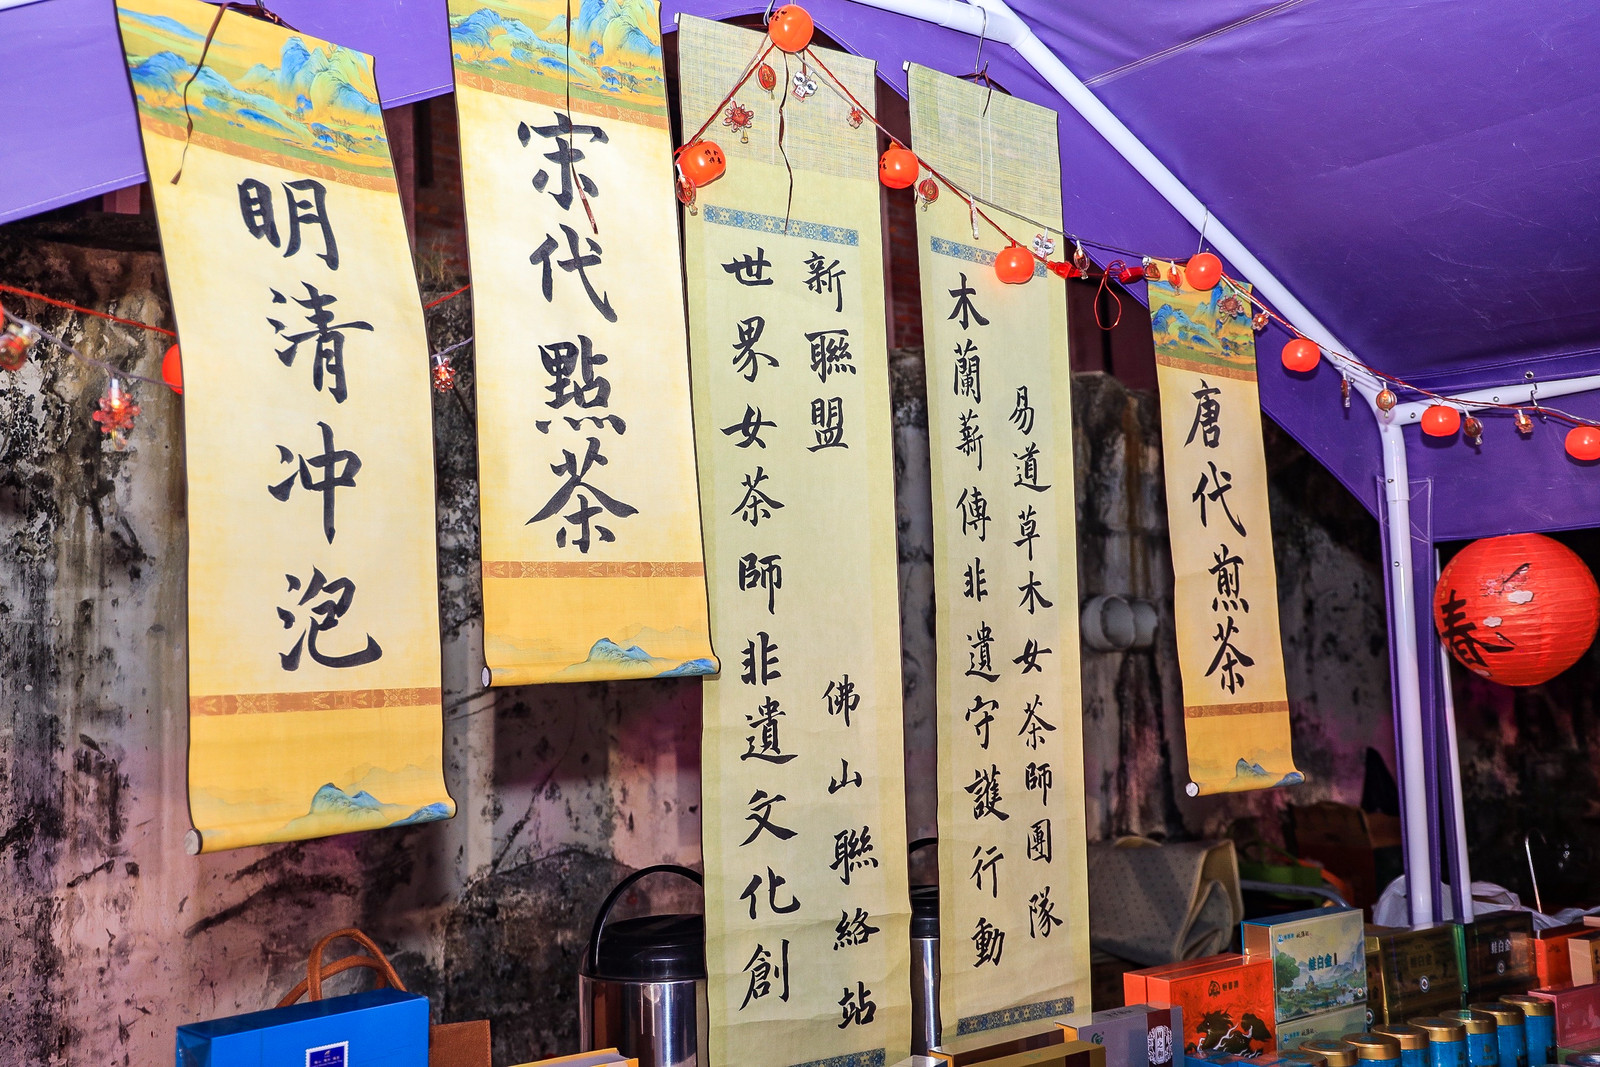 明清冲泡
宋代點茶
世界女茶師非遺文化創
新聯盟
佛山聯絡站
木蘭薪傳非遺守護行動
易道草木女茶師團隊
唐代煎茶
春
鲑白金